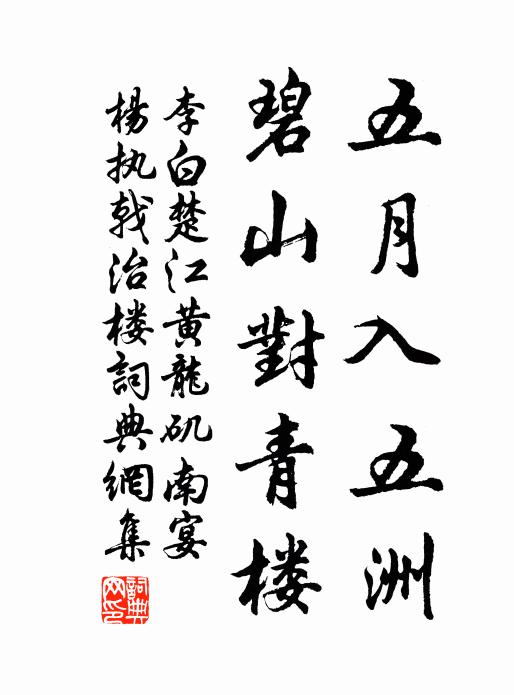 五月入五洲
碧山對青楼
李白楚江黄龍矶南宴
楊执戟治楼詞典網集
詞典网印